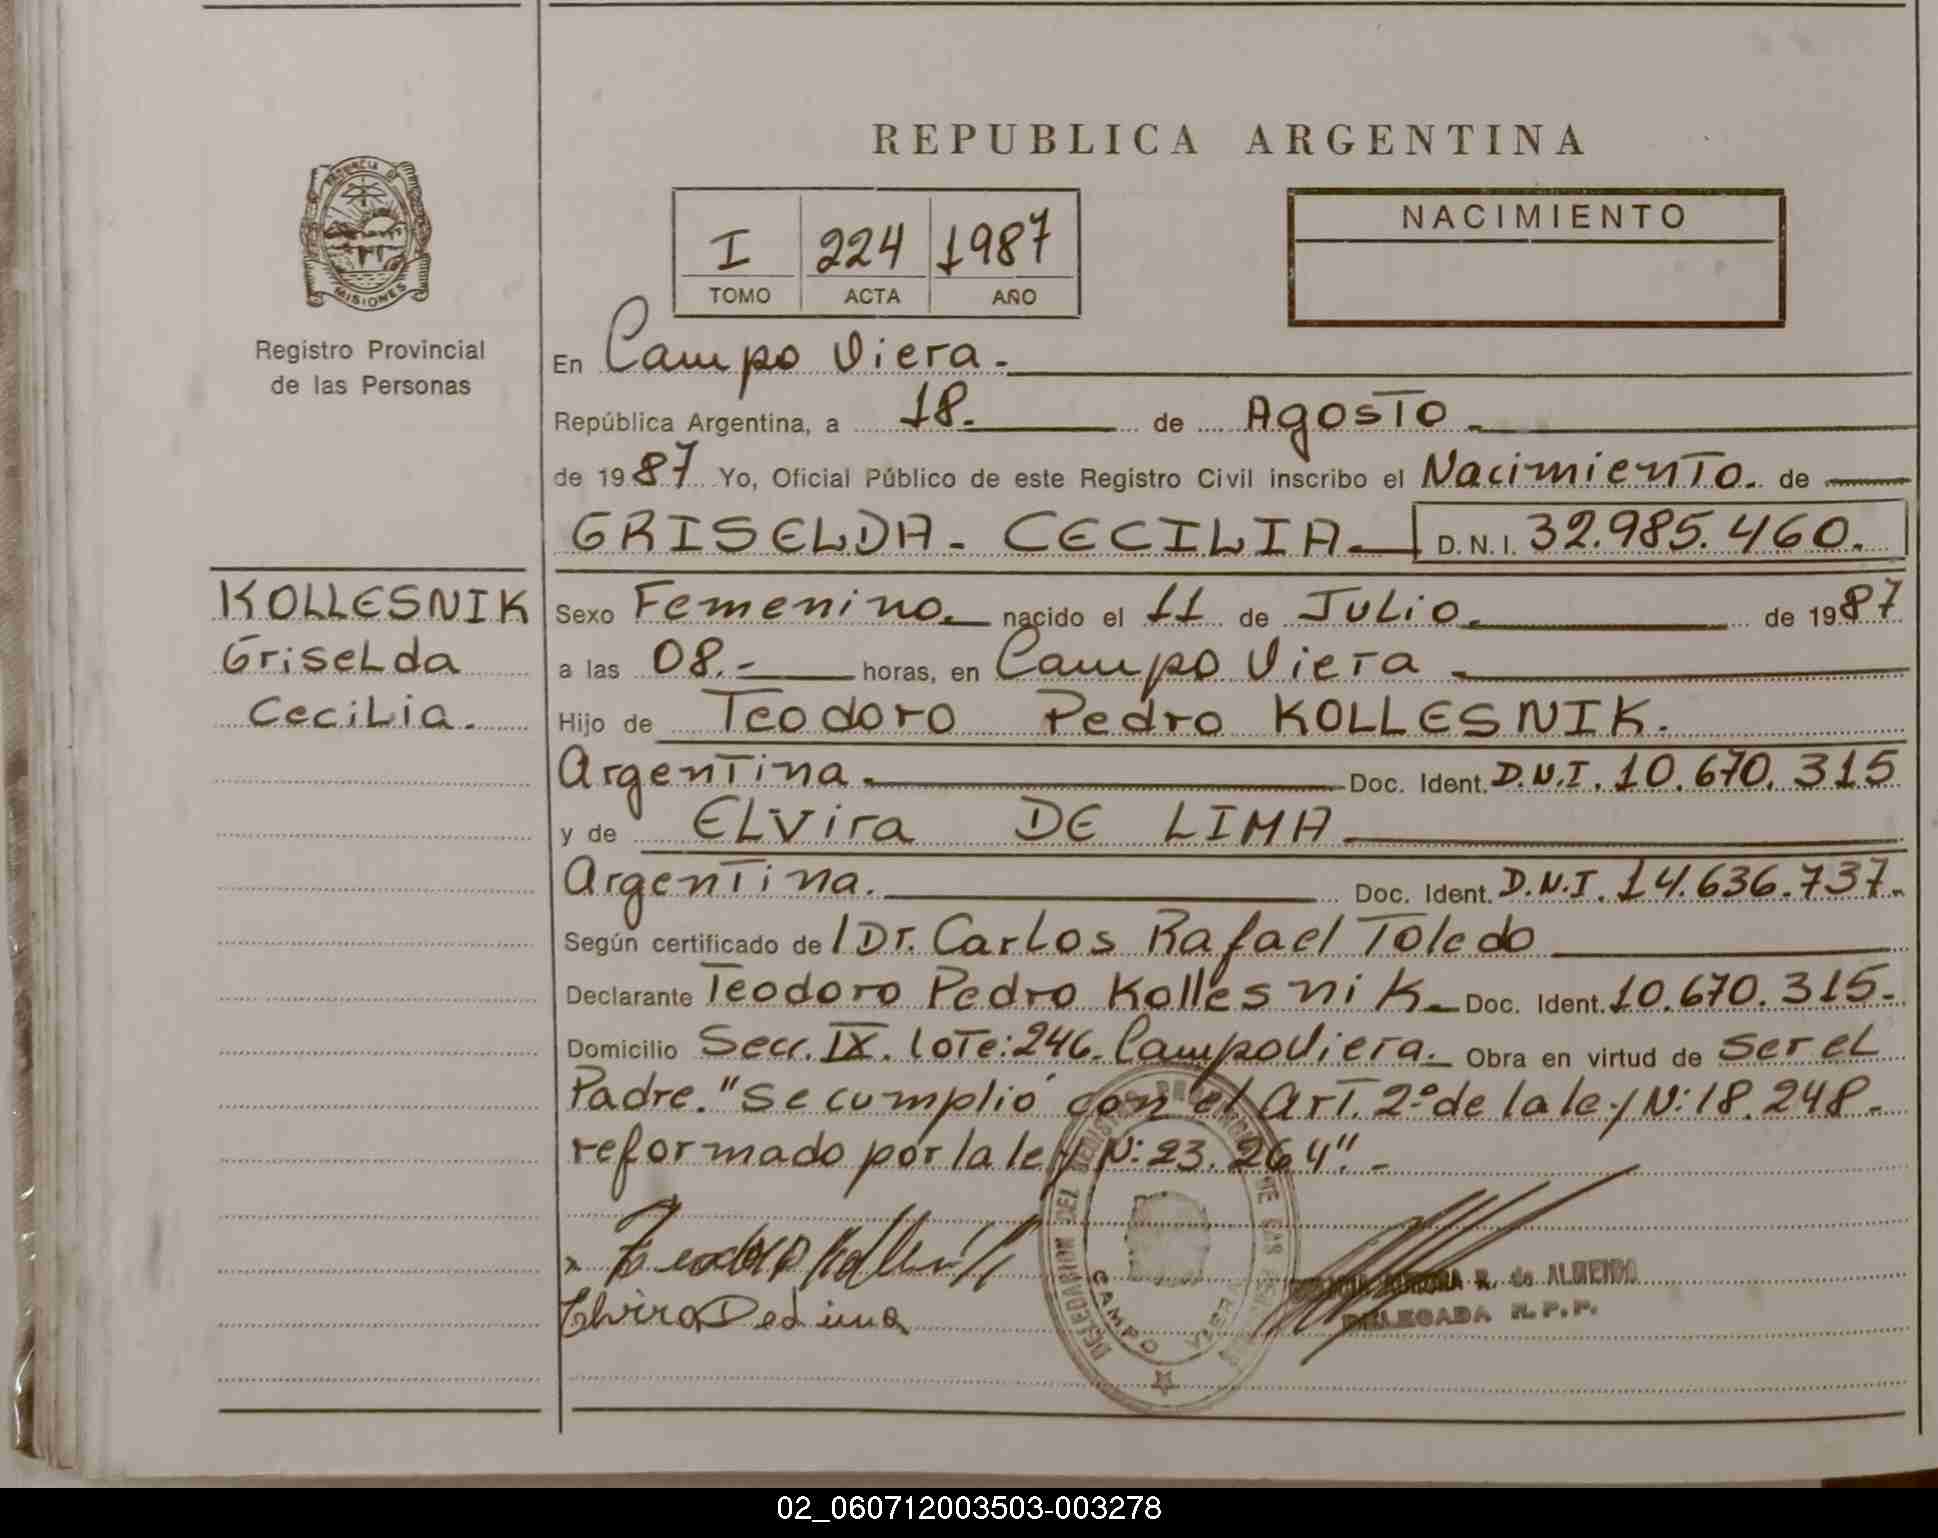 REPUBLICA ARGENTINA
PROVINCIA DE
MISIONES
Registro Provincial
de las Personas
I 224 1987
TOMO ACTA AÑO
NACIMIENTO
En Campo Viera.
República Argentina, a 18. de Agosto
de 1987 Yo, Oficial Público de este Registro Civil inscribo el Nacimiento. de
GRISELDA - CECILIA. D.N.I. 32.985.460.
KOLLESNIK
Griselda
Cecilia.
Sexo Femenino. nacido el 11 de Julio. de 1987
a las 08.- horas, en Campo Viera
Hijo de Teodoro Pedro KOLLESNIK.
Argentina. Doc. Ident. D.N.I. 10.670.315
y de Elvira DE LIMA
Argentina. Doc. Ident. D.N.I. 14.636.737.
Según certificado de / Dr. Carlos Rafael Toledo
Declarante Teodoro Pedro Kollesnik. Doc. Ident. 10.670.315.
Domicilio Secc. IX. lote: 246. Campo Viera. Obra en virtud de ser el
Padre. "Se cumplió con el Art. 2º de la ley N: 18.248.
reformado por la ley N: 23.264".-
Teodoro Kollesnik
Elvira De Lima
CAMPO VIERA
R. de ALMEIDA
DELEGADA R.P.P.
02_060712003503-003278